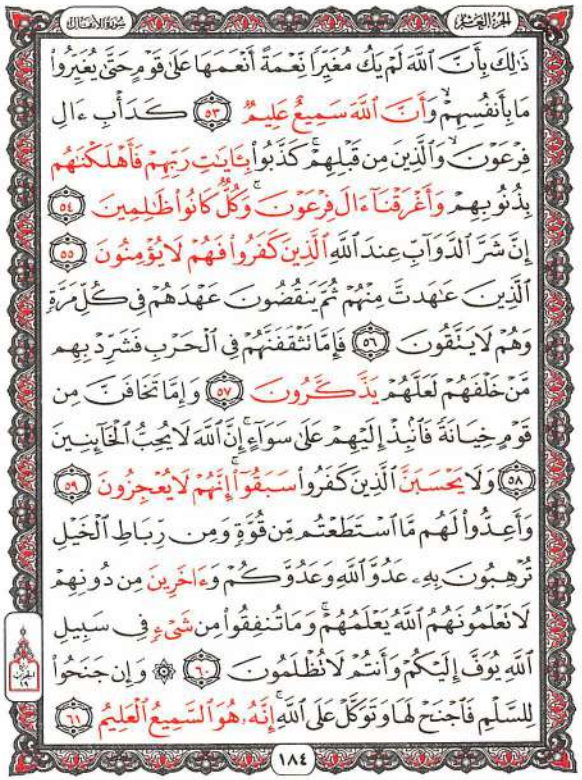 الجزء العاشر
سورة الأنفال
ذَٰلِكَ بِأَنَّ ٱللَّهَ لَمْ يَكُ مُغَيِّرًا نِّعْمَةً أَنْعَمَهَا عَلَىٰ قَوْمٍ حَتَّىٰ يُغَيِّرُوا۟
مَا بِأَنفُسِهِمْ ۙ وَأَنَّ ٱللَّهَ سَمِيعٌ عَلِيمٌ ٥٣ كَدَأْبِ ءَالِ
فِرْعَوْنَ ۙ وَٱلَّذِينَ مِن قَبْلِهِمْ ۚ كَذَّبُوا۟ بِـَٔايَـٰتِ رَبِّهِمْ فَأَهْلَكْنَـٰهُم
بِذُنُوبِهِمْ وَأَغْرَقْنَآ ءَالَ فِرْعَوْنَ ۚ وَكُلٌّ كَانُوا۟ ظَـٰلِمِينَ ٥٤
إِنَّ شَرَّ ٱلدَّوَآبِّ عِندَ ٱللَّهِ ٱلَّذِينَ كَفَرُوا۟ فَهُمْ لَا يُؤْمِنُونَ ٥٥
ٱلَّذِينَ عَـٰهَدتَّ مِنْهُمْ ثُمَّ يَنقُضُونَ عَهْدَهُمْ فِى كُلِّ مَرَّةٍ
وَهُمْ لَا يَتَّقُونَ ٥٦ فَإِمَّا تَثْقَفَنَّهُمْ فِى ٱلْحَرْبِ فَشَرِّدْ بِهِم
مَّنْ خَلْفَهُمْ لَعَلَّهُمْ يَذَّكَّرُونَ ٥٧ وَإِمَّا تَخَافَنَّ مِن
قَوْمٍ خِيَانَةً فَٱنۢبِذْ إِلَيْهِمْ عَلَىٰ سَوَآءٍ ۚ إِنَّ ٱللَّهَ لَا يُحِبُّ ٱلْخَآئِنِينَ
٥٨ وَلَا يَحْسَبَنَّ ٱلَّذِينَ كَفَرُوا۟ سَبَقُوٓا۟ ۚ إِنَّهُمْ لَا يُعْجِزُونَ ٥٩
وَأَعِدُّوا۟ لَهُم مَّا ٱسْتَطَعْتُم مِّن قُوَّةٍ وَمِن رِّبَاطِ ٱلْخَيْلِ
تُرْهِبُونَ بِهِۦ عَدُوَّ ٱللَّهِ وَعَدُوَّكُمْ وَءَاخَرِينَ مِن دُونِهِمْ
لَا تَعْلَمُونَهُمُ ٱللَّهُ يَعْلَمُهُمْ ۚ وَمَا تُنفِقُوا۟ مِن شَىْءٍ فِى سَبِيلِ
ٱللَّهِ يُوَفَّ إِلَيْكُمْ وَأَنتُمْ لَا تُظْلَمُونَ ٦٠ ۞ وَإِن جَنَحُوا۟
لِلسَّلْمِ فَٱجْنَحْ لَهَا وَتَوَكَّلْ عَلَى ٱللَّهِ ۚ إِنَّهُۥ هُوَ ٱلسَّمِيعُ ٱلْعَلِيمُ ٦١
١٨٤